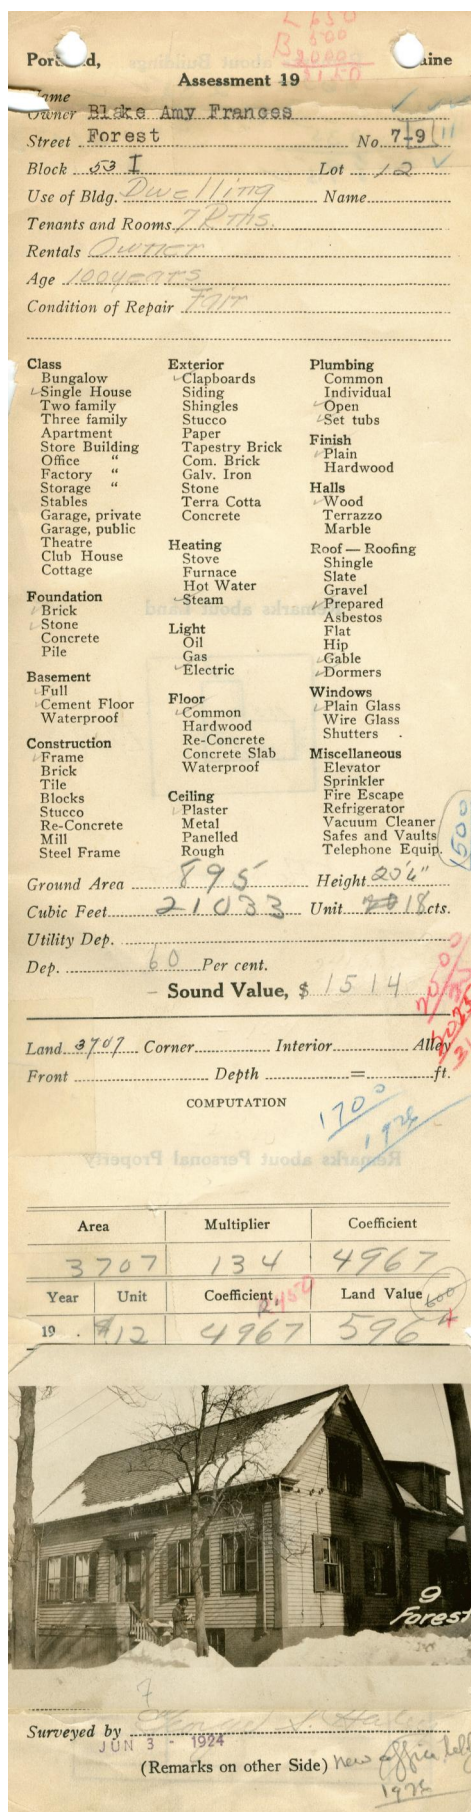 L 650
B 500
2000
3150
Portland, Maine
Assessment 19
Name
Owner Blake Amy Frances
Street Forest No. 7-9 11
Block 53 I Lot 12
Use of Bldg. Dwelling Name
Tenants and Rooms 7 Rms.
Rentals Owner
Age 100 years
Condition of Repair Fair
Class
Bungalow
✓Single House
Two family
Three family
Apartment
Store Building
Office "
Factory "
Storage "
Stables
Garage, private
Garage, public
Theatre
Club House
Cottage
Foundation
✓Brick
✓Stone
Concrete
Pile
Basement
✓Full
✓Cement Floor
Waterproof
Construction
✓Frame
Brick
Tile
Blocks
Stucco
Re-Concrete
Mill
Steel Frame
Exterior
✓Clapboards
Siding
Shingles
Stucco
Paper
Tapestry Brick
Com. Brick
Galv. Iron
Stone
Terra Cotta
Concrete
Heating
Stove
Furnace
Hot Water
✓Steam
Light
Oil
Gas
✓Electric
Floor
✓Common
Hardwood
Re-Concrete
Concrete Slab
Waterproof
Ceiling
✓Plaster
Metal
Panelled
Rough
Plumbing
Common
Individual
✓Open
✓Set tubs
Finish
✓Plain
Hardwood
Halls
✓Wood
Terrazzo
Marble
Roof — Roofing
Shingle
Slate
Gravel
✓Prepared
Asbestos
Flat
Hip
✓Gable
✓Dormers
Windows
✓Plain Glass
Wire Glass
Shutters
Miscellaneous
Elevator
Sprinkler
Fire Escape
Refrigerator
Vacuum Cleaner
Safes and Vaults
Telephone Equip.
1500
Ground Area 895 Height 20'6"
Cubic Feet 21033 Unit 20 18 cts.
Utility Dep.
Dep. 60 Per cent.
Sound Value, $ 1514
Land 3707 Corner Interior Alley
Front Depth = ft.
COMPUTATION
1700
1926
Remarks about Personal Property
Area Multiplier Coefficient
3707 134 4967
Year Unit Coefficient Land Value 600
19 . $12 4967 596
9
Forest
Surveyed by
JUN 3 - 1924
(Remarks on other Side) new office
1926